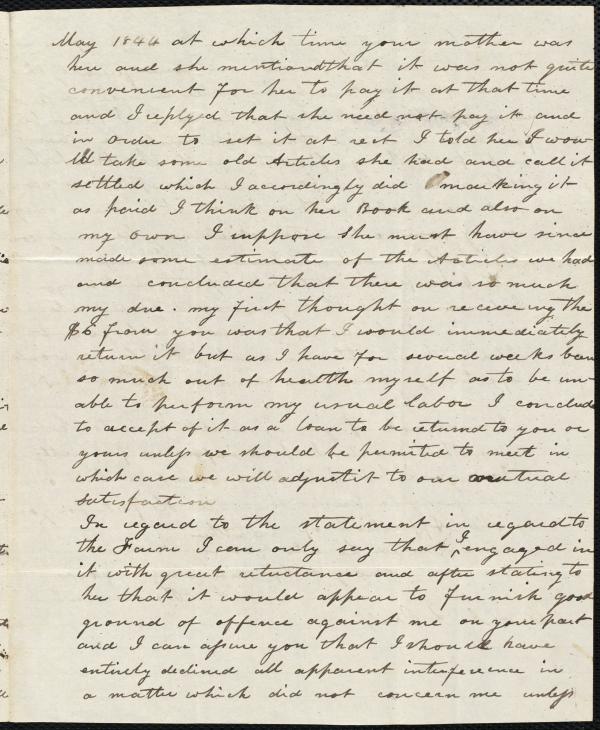 May 1844 at which time your mother was
here and she mentiond that it was not quite
convenient for her to pay it at that time
and I replyd that she need not pay it and
in order to set it at rest I told her I wou
ld take some old Articles she had and call it
settled which I accordingly did marking it
as paid I think on her Book and also on
my own I suppose she must have since
made some estimate of the Articles we had
and concluded that there was so much
my due. my first thought on receiveing the
$6 from you was that I would immediately
return it but as I have for several weeks been
so much out of health myself as to be un-
able to perform my usual labor I conclude
to accept of it as a loan to be returnd to you or
yours unless we should be permited to meet in
which case we will adjust it to our mutual
satisfaction
In regard to the statement in regard to
the Farm I can only say that I engaged in
it with great reluctance and after stating to
her that it would appear to furnish good
ground of offence against me on your part
and I can assure you that I should have
entirely declined all apparent interference in
a matter which did not concern me unless